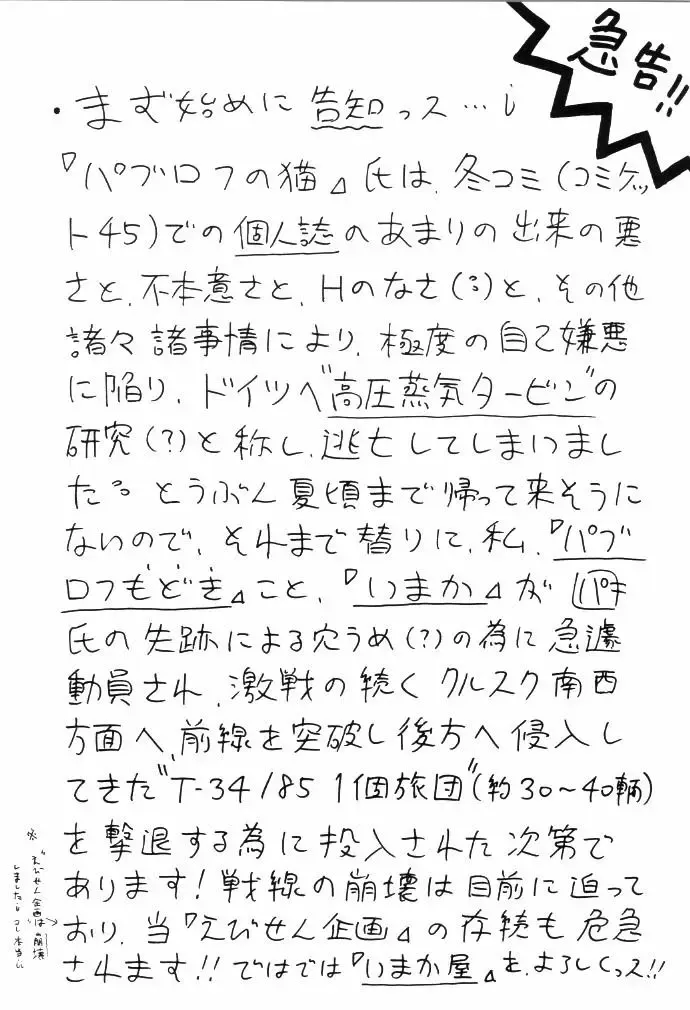 急告!!
・まず始めに告知っス…i
『パブロフの猫』氏は、冬コミ(コミケッ
ト45)での個人誌のあまりの出来の悪
さと、不本意さと、Hのなさ(:)と、その他
諸々諸事情により、極度の自己嫌悪
に陥り、ドイツへ"高圧蒸気タービン"の
研究(?)と称し、逃亡してしまいまし
た。とうぶん夏頃まで帰って来そうに
ないので、それまで替りに、私、『パブ
ロフもどき』こと、『いまか』が パキ
氏の失跡による穴うめ(?)の為に急遽
動員され、激戦の続くクルスク南西
方面へ、前線を突破し後方へ侵入し
てきた"T-34/85 1個旅団"(約30〜40輌)
を撃退する為に投入された次第で
あります!戦線の崩壊は目前に迫って
おり、当『えびせん企画』の存続も危急
されます!!ではでは『いまか屋』を、よろしくっス!!
※"えびせん企画"は崩壊
しました:コレ本当